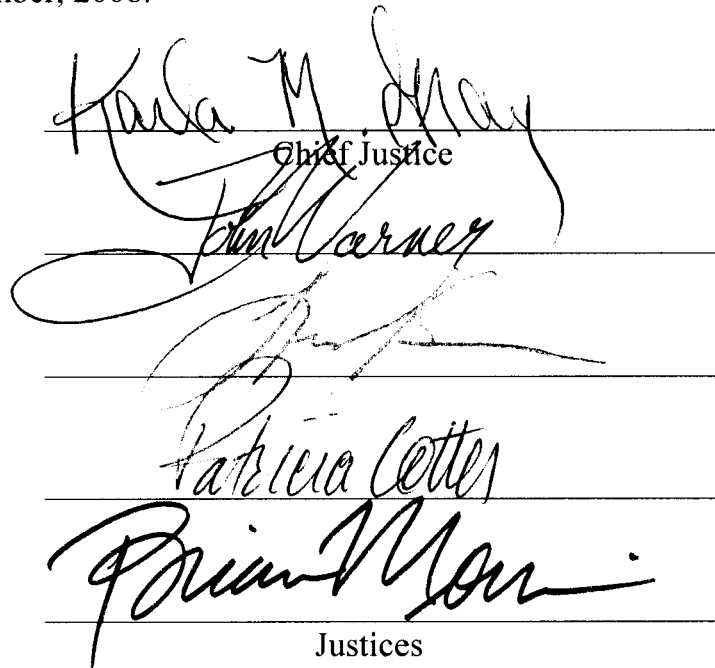 Karla M. Gray
Chief Justice
John Warner
Patricia Cotter
Brian Morris
Justices